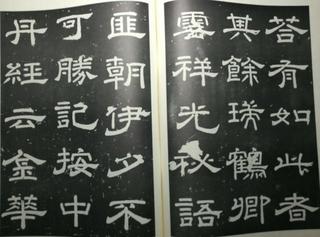 答有如此者
其餘瑞鶴卿
雲祥光秘語
匪朝伊夕不
可勝記按中
丹經云金華